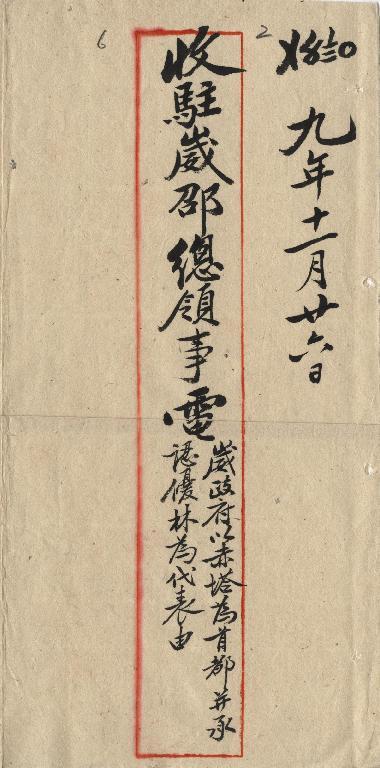 九年十一月廿六日
收駐崴邵總領事電
崴政府以赤塔為首都并承
認優林為代表由
2
6